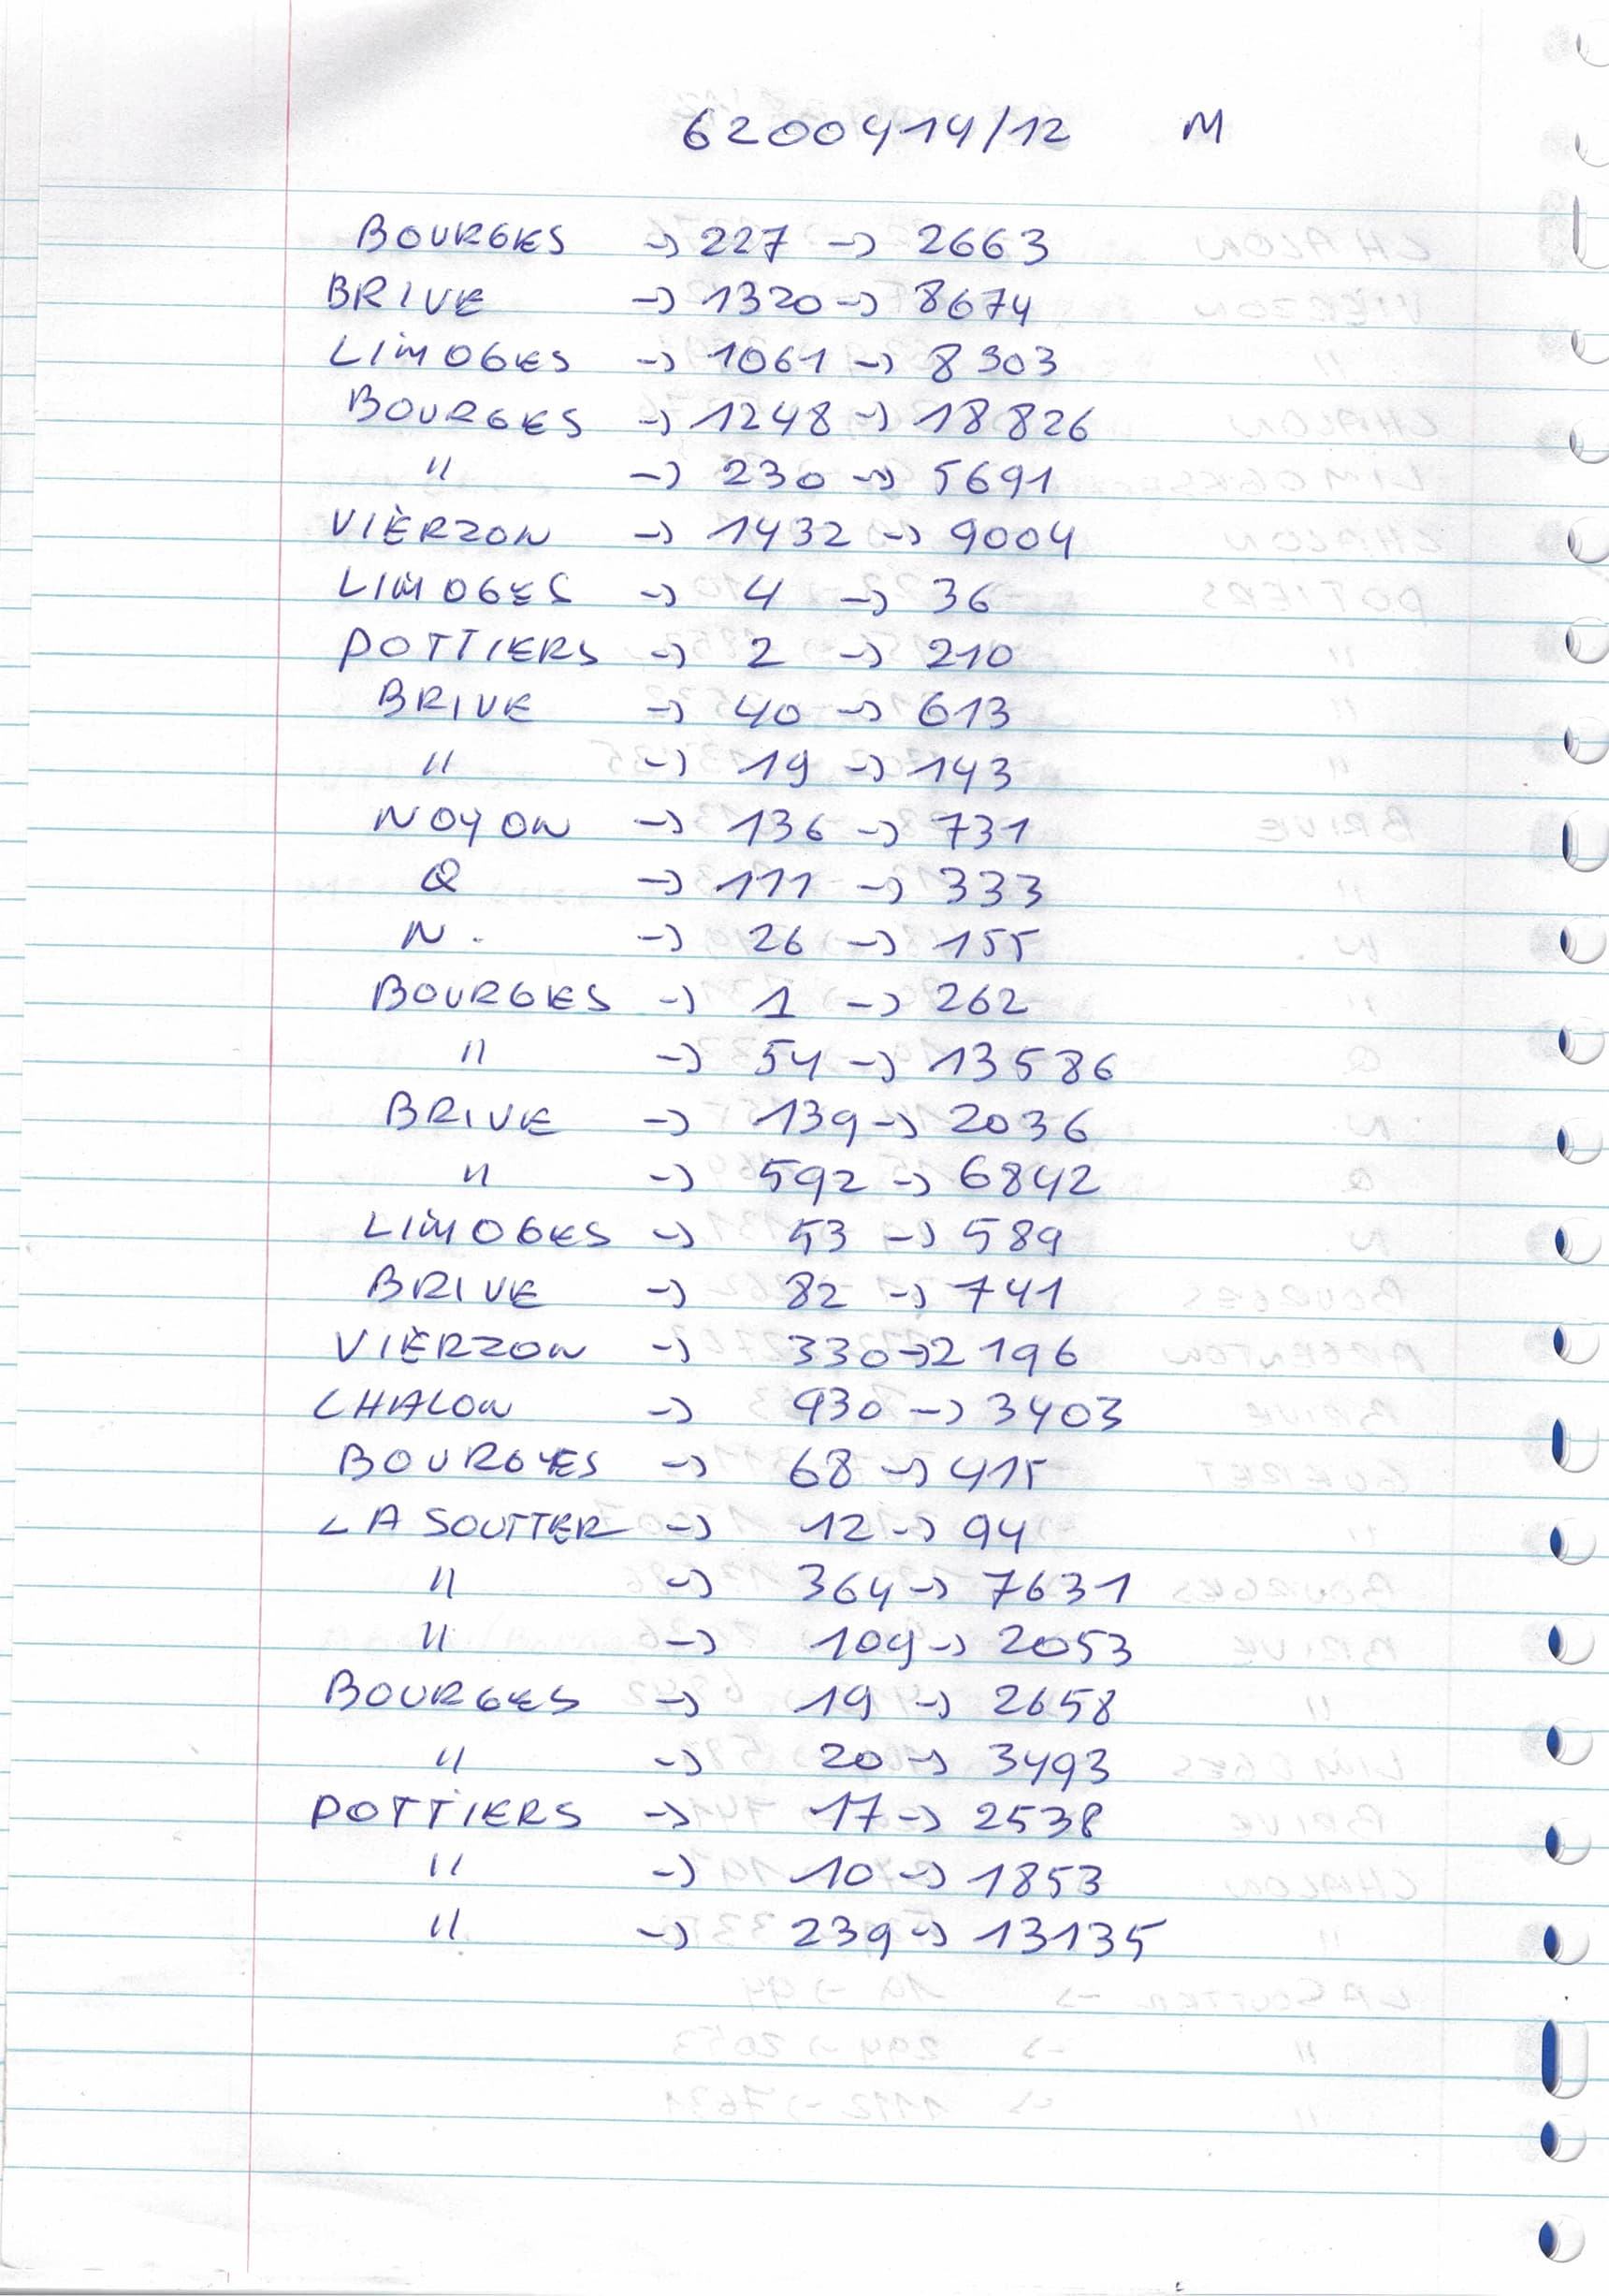 6200414/12 M
BOURGES -> 227 -> 2663
BRIVE -> 1320 -> 8674
LIMOGES -> 1061 -> 8303
BOURGES -> 1248 -> 18826
" -> 230 -> 5691
VIERZON -> 1432 -> 9004
LIMOGES -> 4 -> 36
POTTIERS -> 2 -> 210
BRIVE -> 40 -> 613
" -> 19 -> 143
NOYON -> 136 -> 731
Q -> 111 -> 333
N. -> 26 -> 155
BOURGES -> 1 -> 262
" -> 54 -> 13586
BRIVE -> 139 -> 2036
" -> 592 -> 6842
LIMOGES -> 53 -> 589
BRIVE -> 82 -> 741
VIERZON -> 330 -> 2196
CHALON -> 930 -> 3403
BOURGES -> 68 -> 415
LA SOUTTER -> 12 -> 94
" -> 364 -> 7631
" -> 109 -> 2053
BOURGES -> 19 -> 2658
" -> 20 -> 3493
POTTIERS -> 17 -> 2538
" -> 10 -> 1853
" -> 239 -> 13135